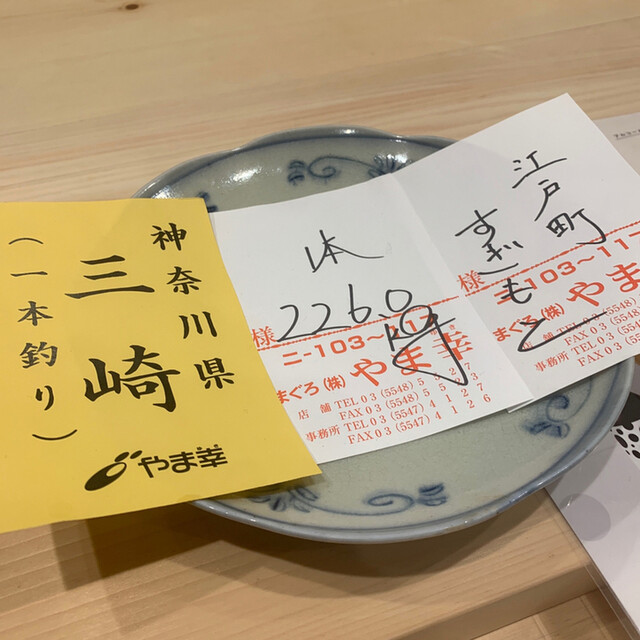 神奈川県
三崎
(一本釣り)
やま幸
226.0
様
ニ-103〜117
まぐろ(株)やま幸
店舗 TEL 03(5548)5
FAX 03(5548)5
事務所 TEL 03(5547)4127
FAX 03(5547)4126
江戸町
すぎもと
様
ニ-103〜117
まぐろ(株)やま
FAX 03(5548)
事務所 TEL 03(55
FAX 03(